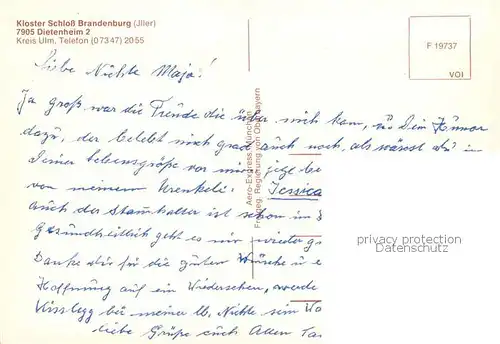 Kloster Schloß Brandenburg (Jller)
7905 Dietenheim 2
Kreis Ulm, Telefon (07347) 2055
F 19737
VOI
Liebe Nichte Maja!
Ja groß war die Freude die über mich kam, Dein Humor
dazu, der belebt mich grad auch noch, als wärest du in
Deiner Lebensgröße vor mir
von meinem Urenkele: Jessica
auch der Stammhalter ist schon im
Gesundheitlich geht es mir wieder
Danke dir für die guten Wünsche u
Hoffnung auf ein Wiedersehen, werde
Kisslegg bei meiner lb. Nichte sein
liebe Grüße euch Allen
Aero-Express München
Freigeg. Regierung von Oberbayern
privacy protection
Datenschutz